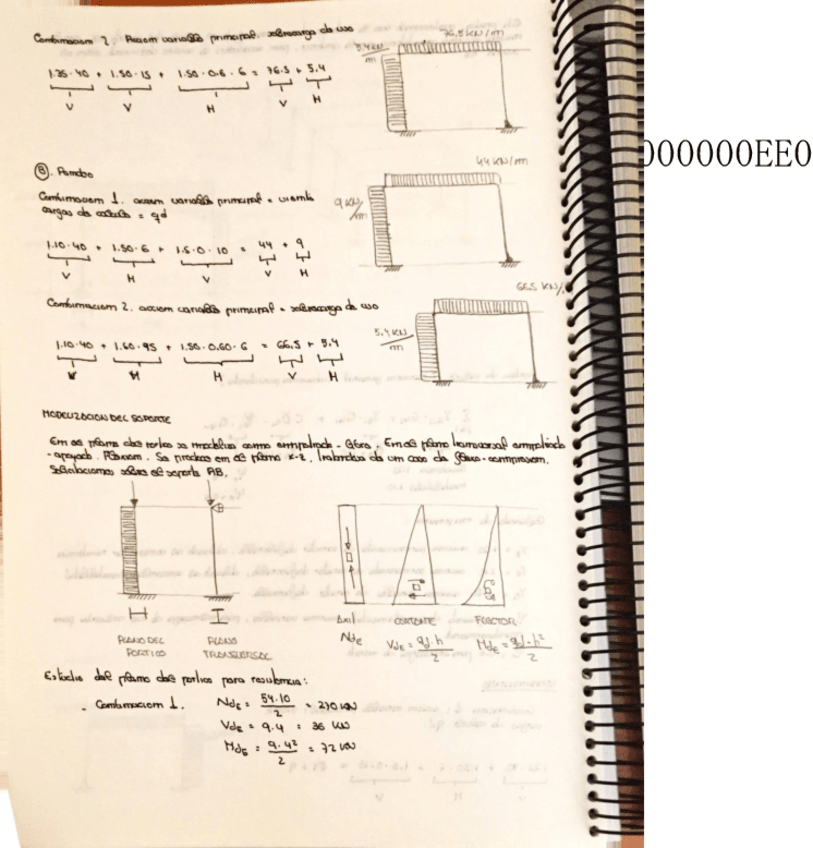 Combinacion 2. Accion variable principal. sobrecarga de uso
76,5 KN/m
5.4 KN/m
1.35·40 + 1.50·15 + 1.50·0.6·6 = 76.5 + 5.4
V V H V H
000000EE0
B. Pandeo
44 KN/m
Combinacion 1. accion variable principal = viento
cargas de calculo = qd
9 KN/m
1.10·40 + 1.50·6 + 1.5·0·10 = 44 + 9
V H V V H
66.5 KN/
Combinacion 2. accion variable principal = sobrecarga de uso
5.4 KN/m
1.10·40 + 1.60·95 + 1.50·0.60·6 = 66.5 + 5.4
V H H V H
MODELIZACION DEL SOPORTE
En el plano del portico se modeliza como empotrado - libre. En el plano transversal empotrado
- apoyado. Pandeo en el plano x-z, tratandose de un caso de flexo-compresion.
sobre el soporte AB.
PLANO DEL PORTICO
PLANO TRANSVERSAL
Axil CORTANTE FLECTOR
NdE VdE = qd·h/2 MdE = qd·h²/2
Estudio del plano del portico para resistencia:
- Combinacion 1. NdE = 54·10/2 = 270 KN
VdE = 9.4 = 36 KN
MdE = 9.4²/2 = 72 KN